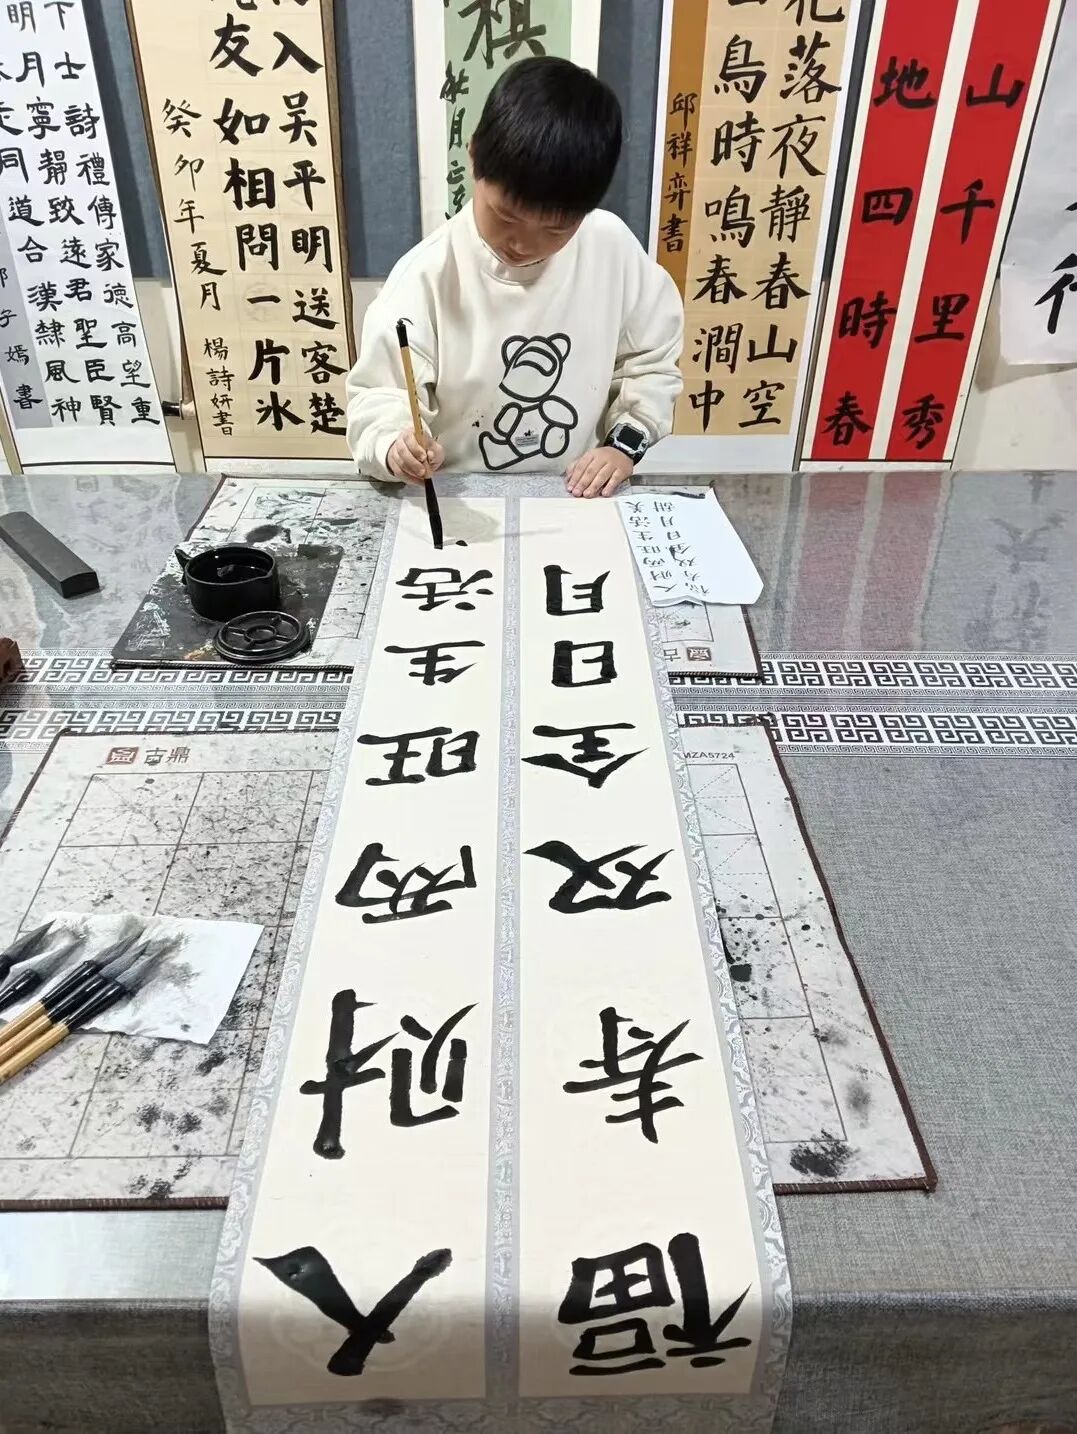 山千里秀
地四時春
花落夜靜春山空
鳥時鳴春澗中
邱祥弈書
棋
秋月
入吳平明送客楚
友如相問一片冰
癸卯年夏月 楊詩妍書
下士詩禮傳家德高望重
明月寧靜致遠君聖臣賢
同道合漢隸風神
子嫣書
福寿双全日月
人财两旺生活
福寿双全日月甜
人财两旺生活美
古鼎
MZA5724
古